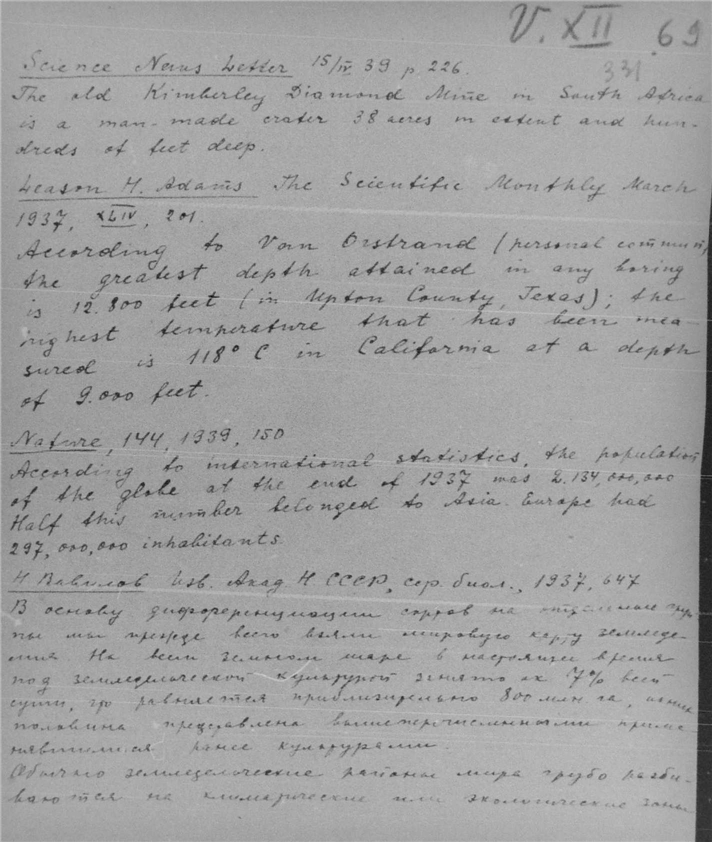 V. XII . 69
331
Science News Letter 15/IV 39 p. 226.
The old Kimberley Diamond Mine in South Africa
is a man-made crater 38 acres in extent and hun-
dreds of feet deep.
Leason H. Adams The Scientific Monthly March
1937, XLIV, 201.
According to Van Orstrand (personal commun,
the greatest depth attained in any boring
is 12.800 feet (in Upton County, Texas); the
highest temperature that has been mea-
sured is 118° C in California at a depth
of 9.000 feet.
Nature, 144, 1939, 150
According to international statistics, the population
of the globe at the end of 1937 was 2.134,000,000
Half this number belonged to Asia. Europe had
297,000,000 inhabitants
Н Вавилов Изв. Акад Н СССР, сер. биол., 1937, 647
В основу дифференциации сортов на отдельные груп-
пы мы прежде всего взяли мировую карту земледе-
лия. На всем земном шаре в настоящее время
под земледельческой культурой занято ок 7% всей
суши, что равняется приблизительно 800 млн га, из них
половина представлена вышеперечисленными приме
нявшимися ранее культурами.
Обычно земледельческие районы мира грубо разби-
ваются на климатические или экологические зоны